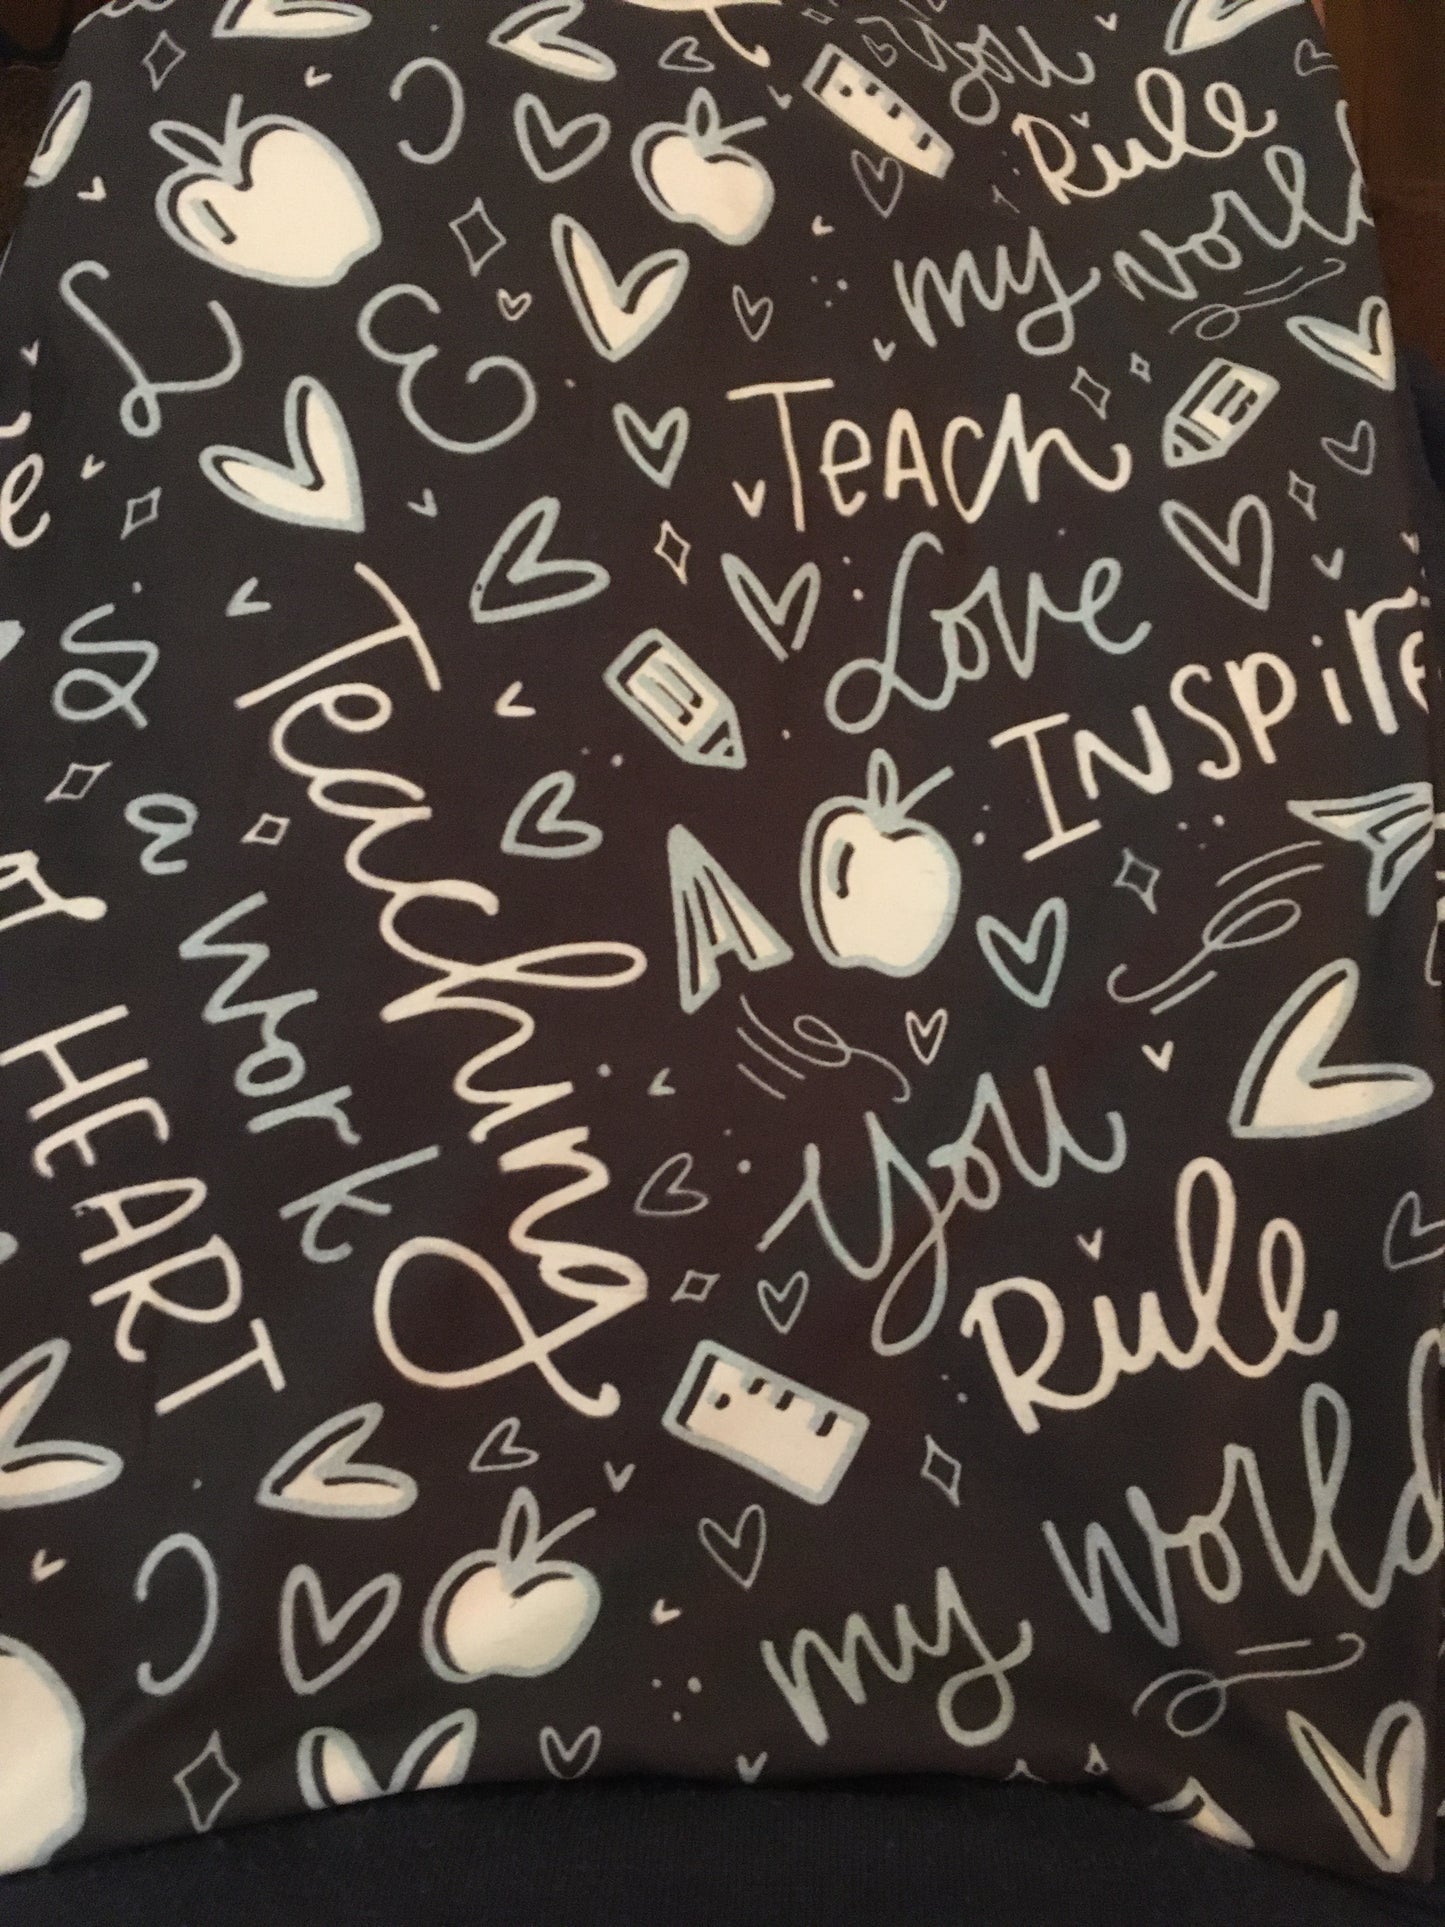 You
Rule
my world
Teach
Love
Inspire
Teaching
is
a
Work
HEART
You
Rule
my world